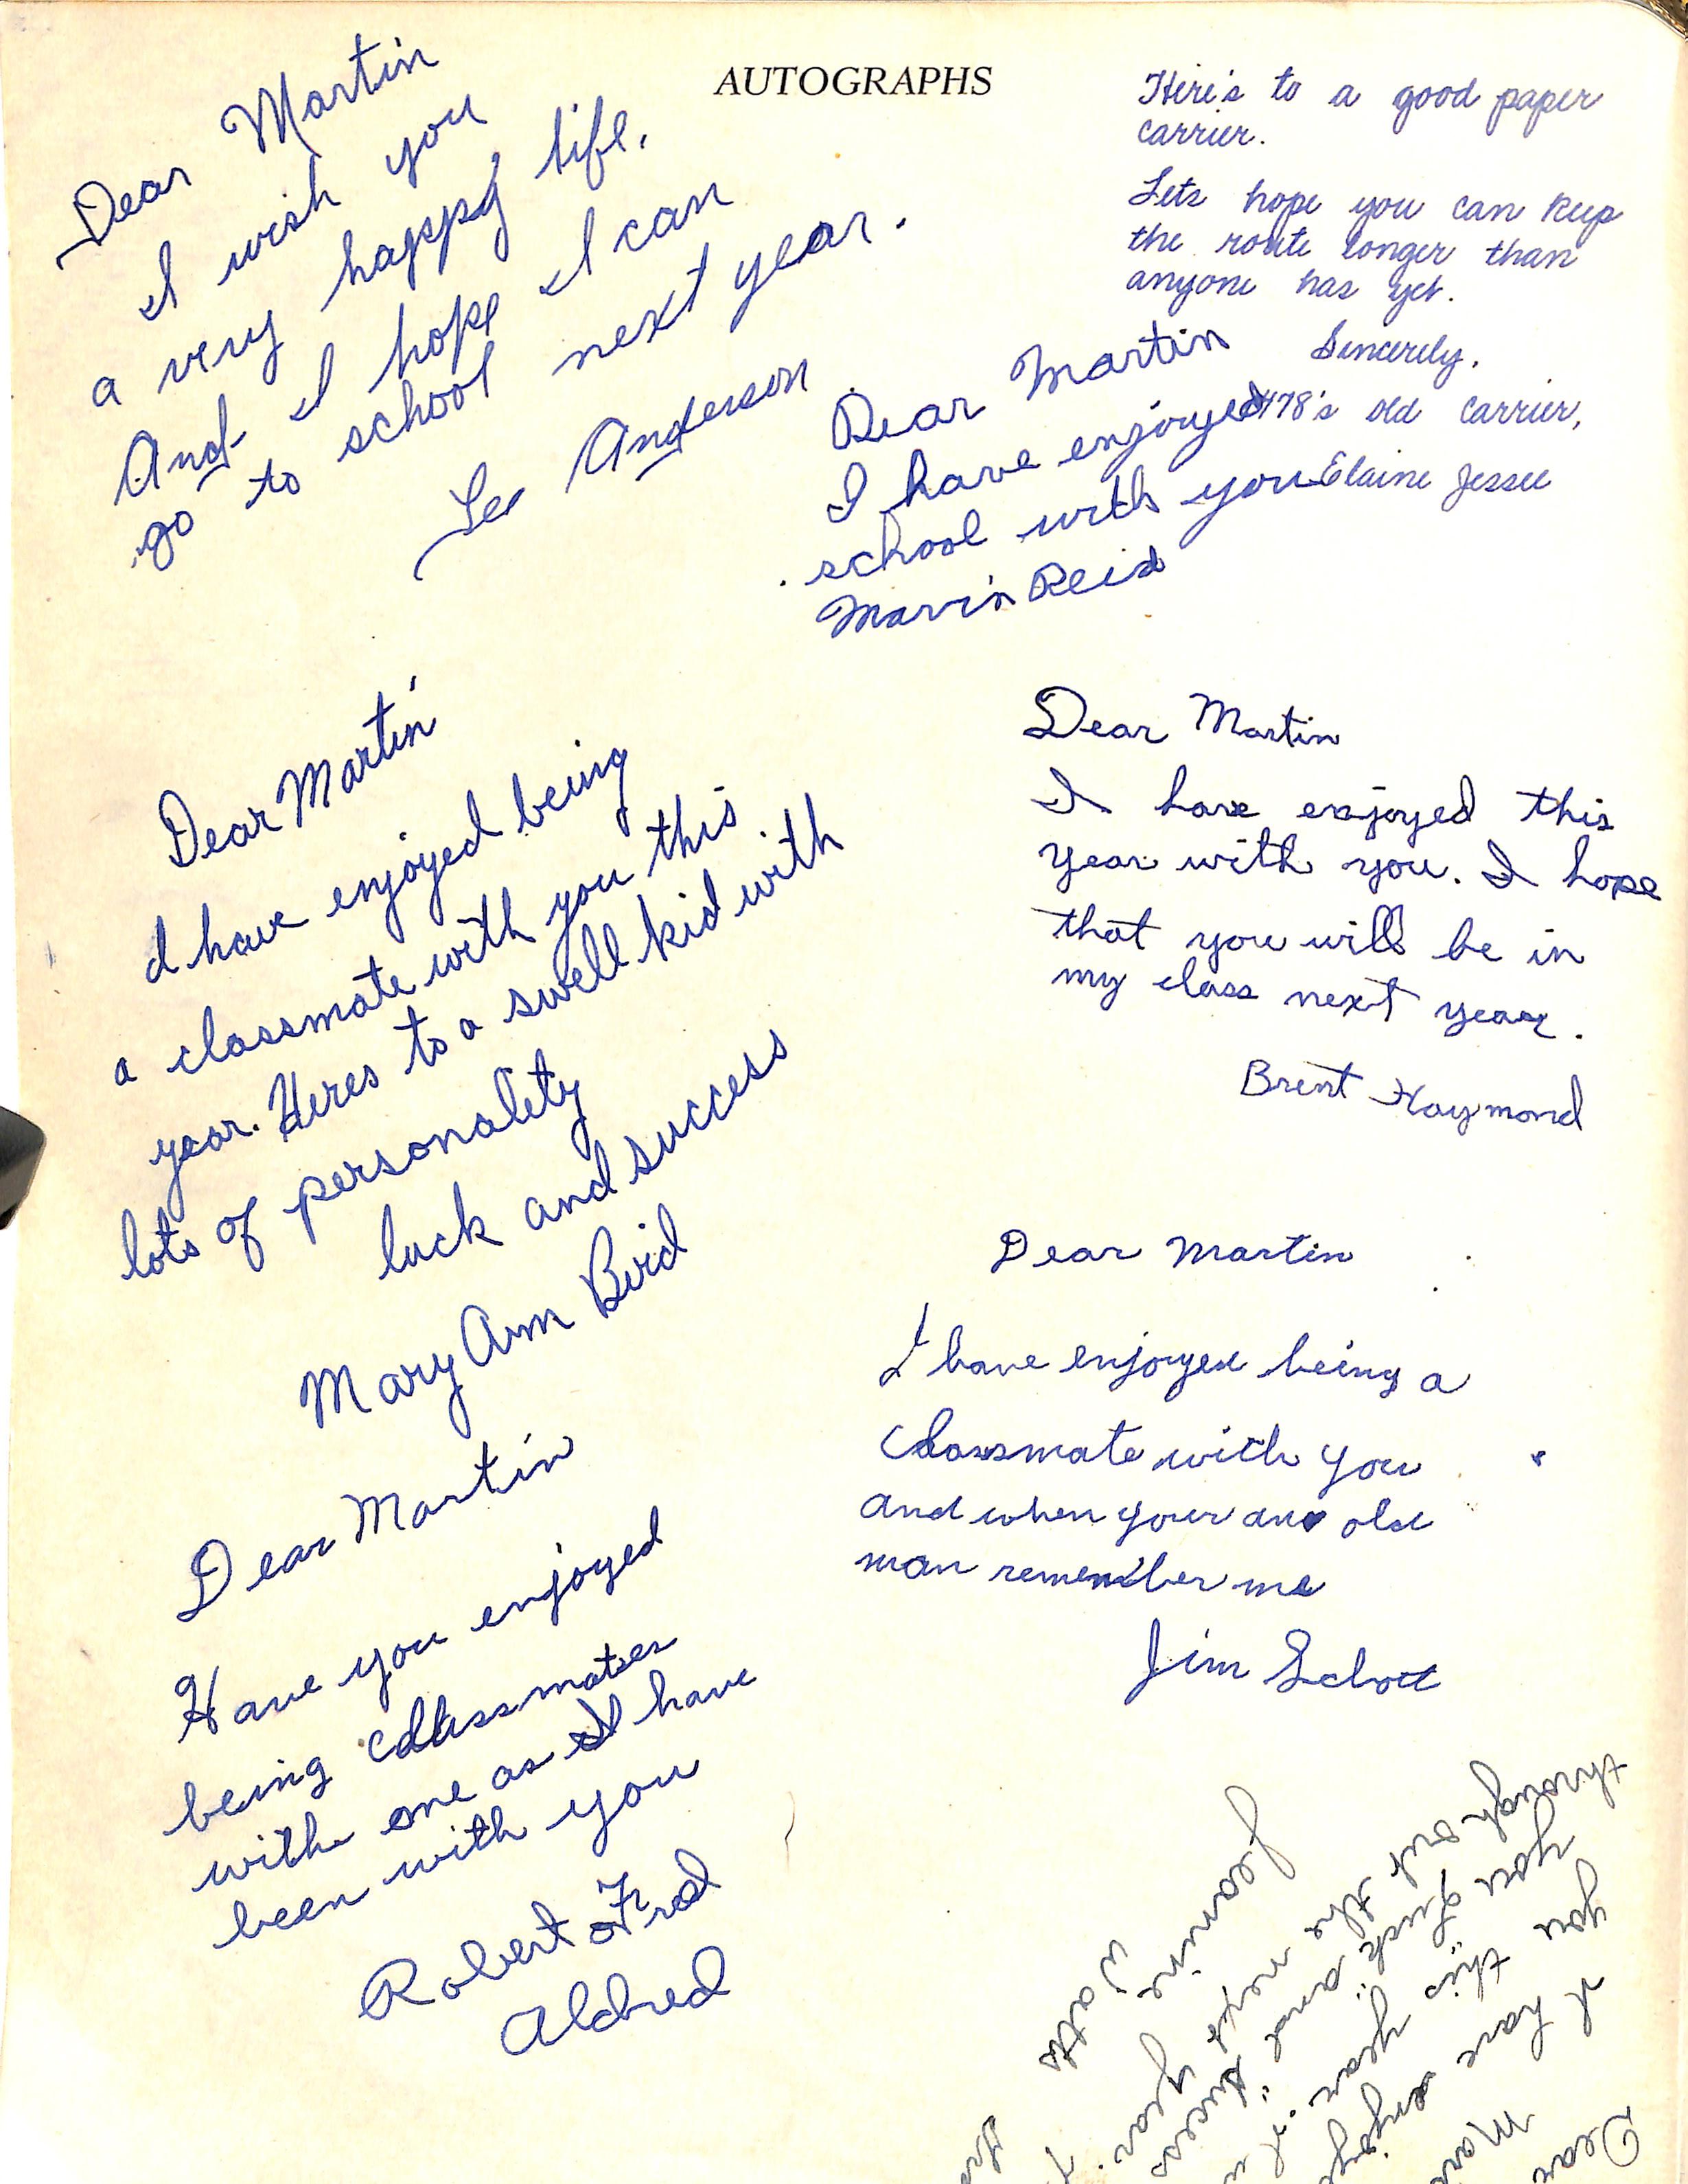 AUTOGRAPHS
Dear Martin
I wish you
a very happy life.
And I hope I can
go to school next year.
Les Anderson
Here's to a good paper
carrier.
Lets hope you can keep
the route longer than
anyone has yet.
Sincerely,
478's old carrier,
Elaine Jessee
Dear Martin
I have enjoyed
school with you
Marvin Reid
Dear Martin
I have enjoyed being
a classmate with you this
year. Heres to a swell kid with
lots of personality
luck and success
Mary Ann Bird
Dear Martin
I have enjoyed this
year with you. I hope
that you will be in
my class next year.
Brent Haymond
Dear Martin
I have enjoyed being a
classmate with you
and when your an old
man remember me
Jim Schott
Dear Martin
Have you enjoyed
being classmates
with me as I have
been with you
Robert Fred
Aldred
Dear
I have
you this year.
you "luck and "success
through out the next year.
Jeanine Watts